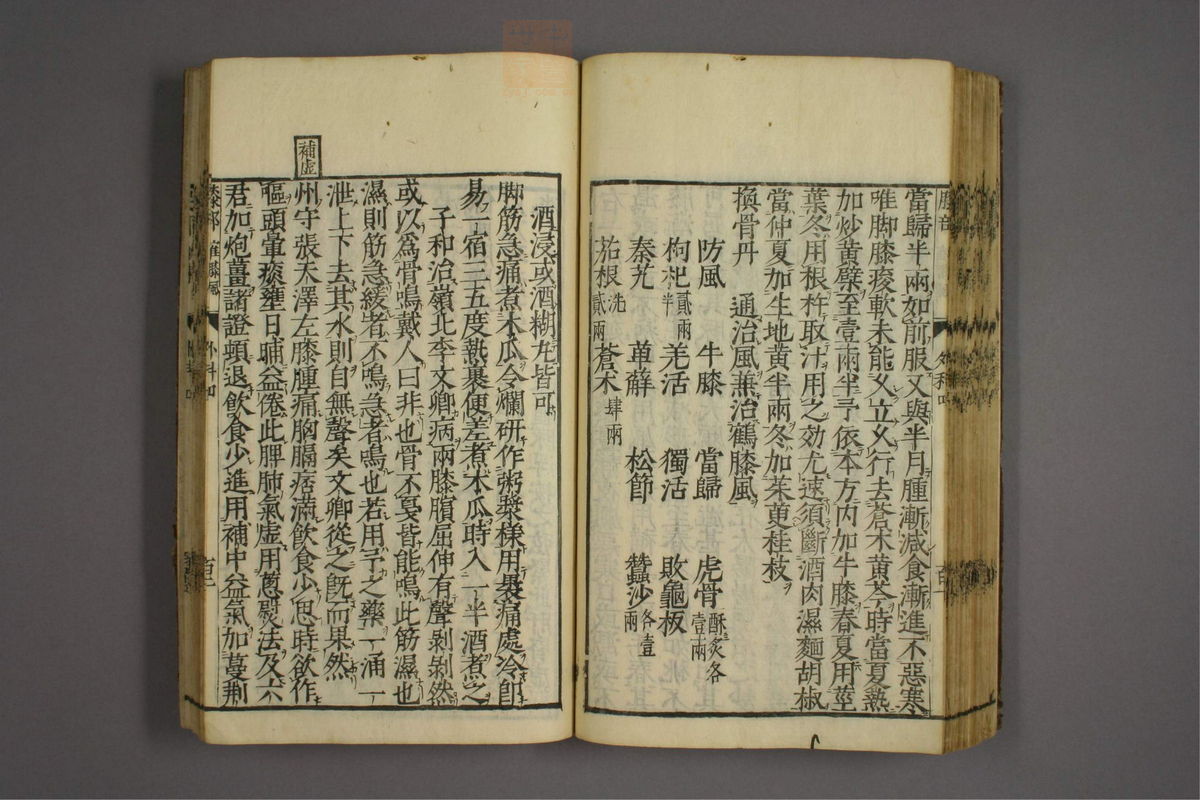 當歸半兩如前服又與半月腫漸減食漸進不惡寒
唯脚膝痠軟未能乆立乆行去蒼术黄芩時當夏熱
加炒黄檗至壹兩半予依本方内加牛膝春夏用莖
葉冬用根杵取汁用之効尤速須斷酒肉濕麵胡椒
當仲夏加生地黄半兩冬加茱萸桂枝
換骨丹　通治風兼治鶴膝風
防風　牛膝　當歸　虎骨酥炙各壹兩
枸杞貳兩半　羌活　獨活　敗龜板
秦艽　萆薢　松節　蠶沙各壹兩
茄根洗貳兩　蒼术肆兩
酒浸或酒糊丸皆可
脚筋急痛煮木瓜令爛研作粥漿樣用裹痛處冷卽
易一宿三五度熱裹便差煮木瓜時入一半酒煮之
子和治嶺北李文卿病兩膝臏屈伸有聲剝剝然
或以爲骨鳴戴人曰非也骨不戛皆能鳴此筋濕也
濕則筋急緩者不鳴急者鳴也若用予之藥一涌一
泄上下去其水則自無聲矣文卿從之旣而果然
補虛
州守張天澤左膝腫痛胸膈痞滿飲食少思時欲作
嘔頭暈痰壅日晡益倦此脾肺氣虛用蔥熨法及六
君加炮薑諸證頓退飲食少進用補中益氣加蔓荆
膝部
外科四